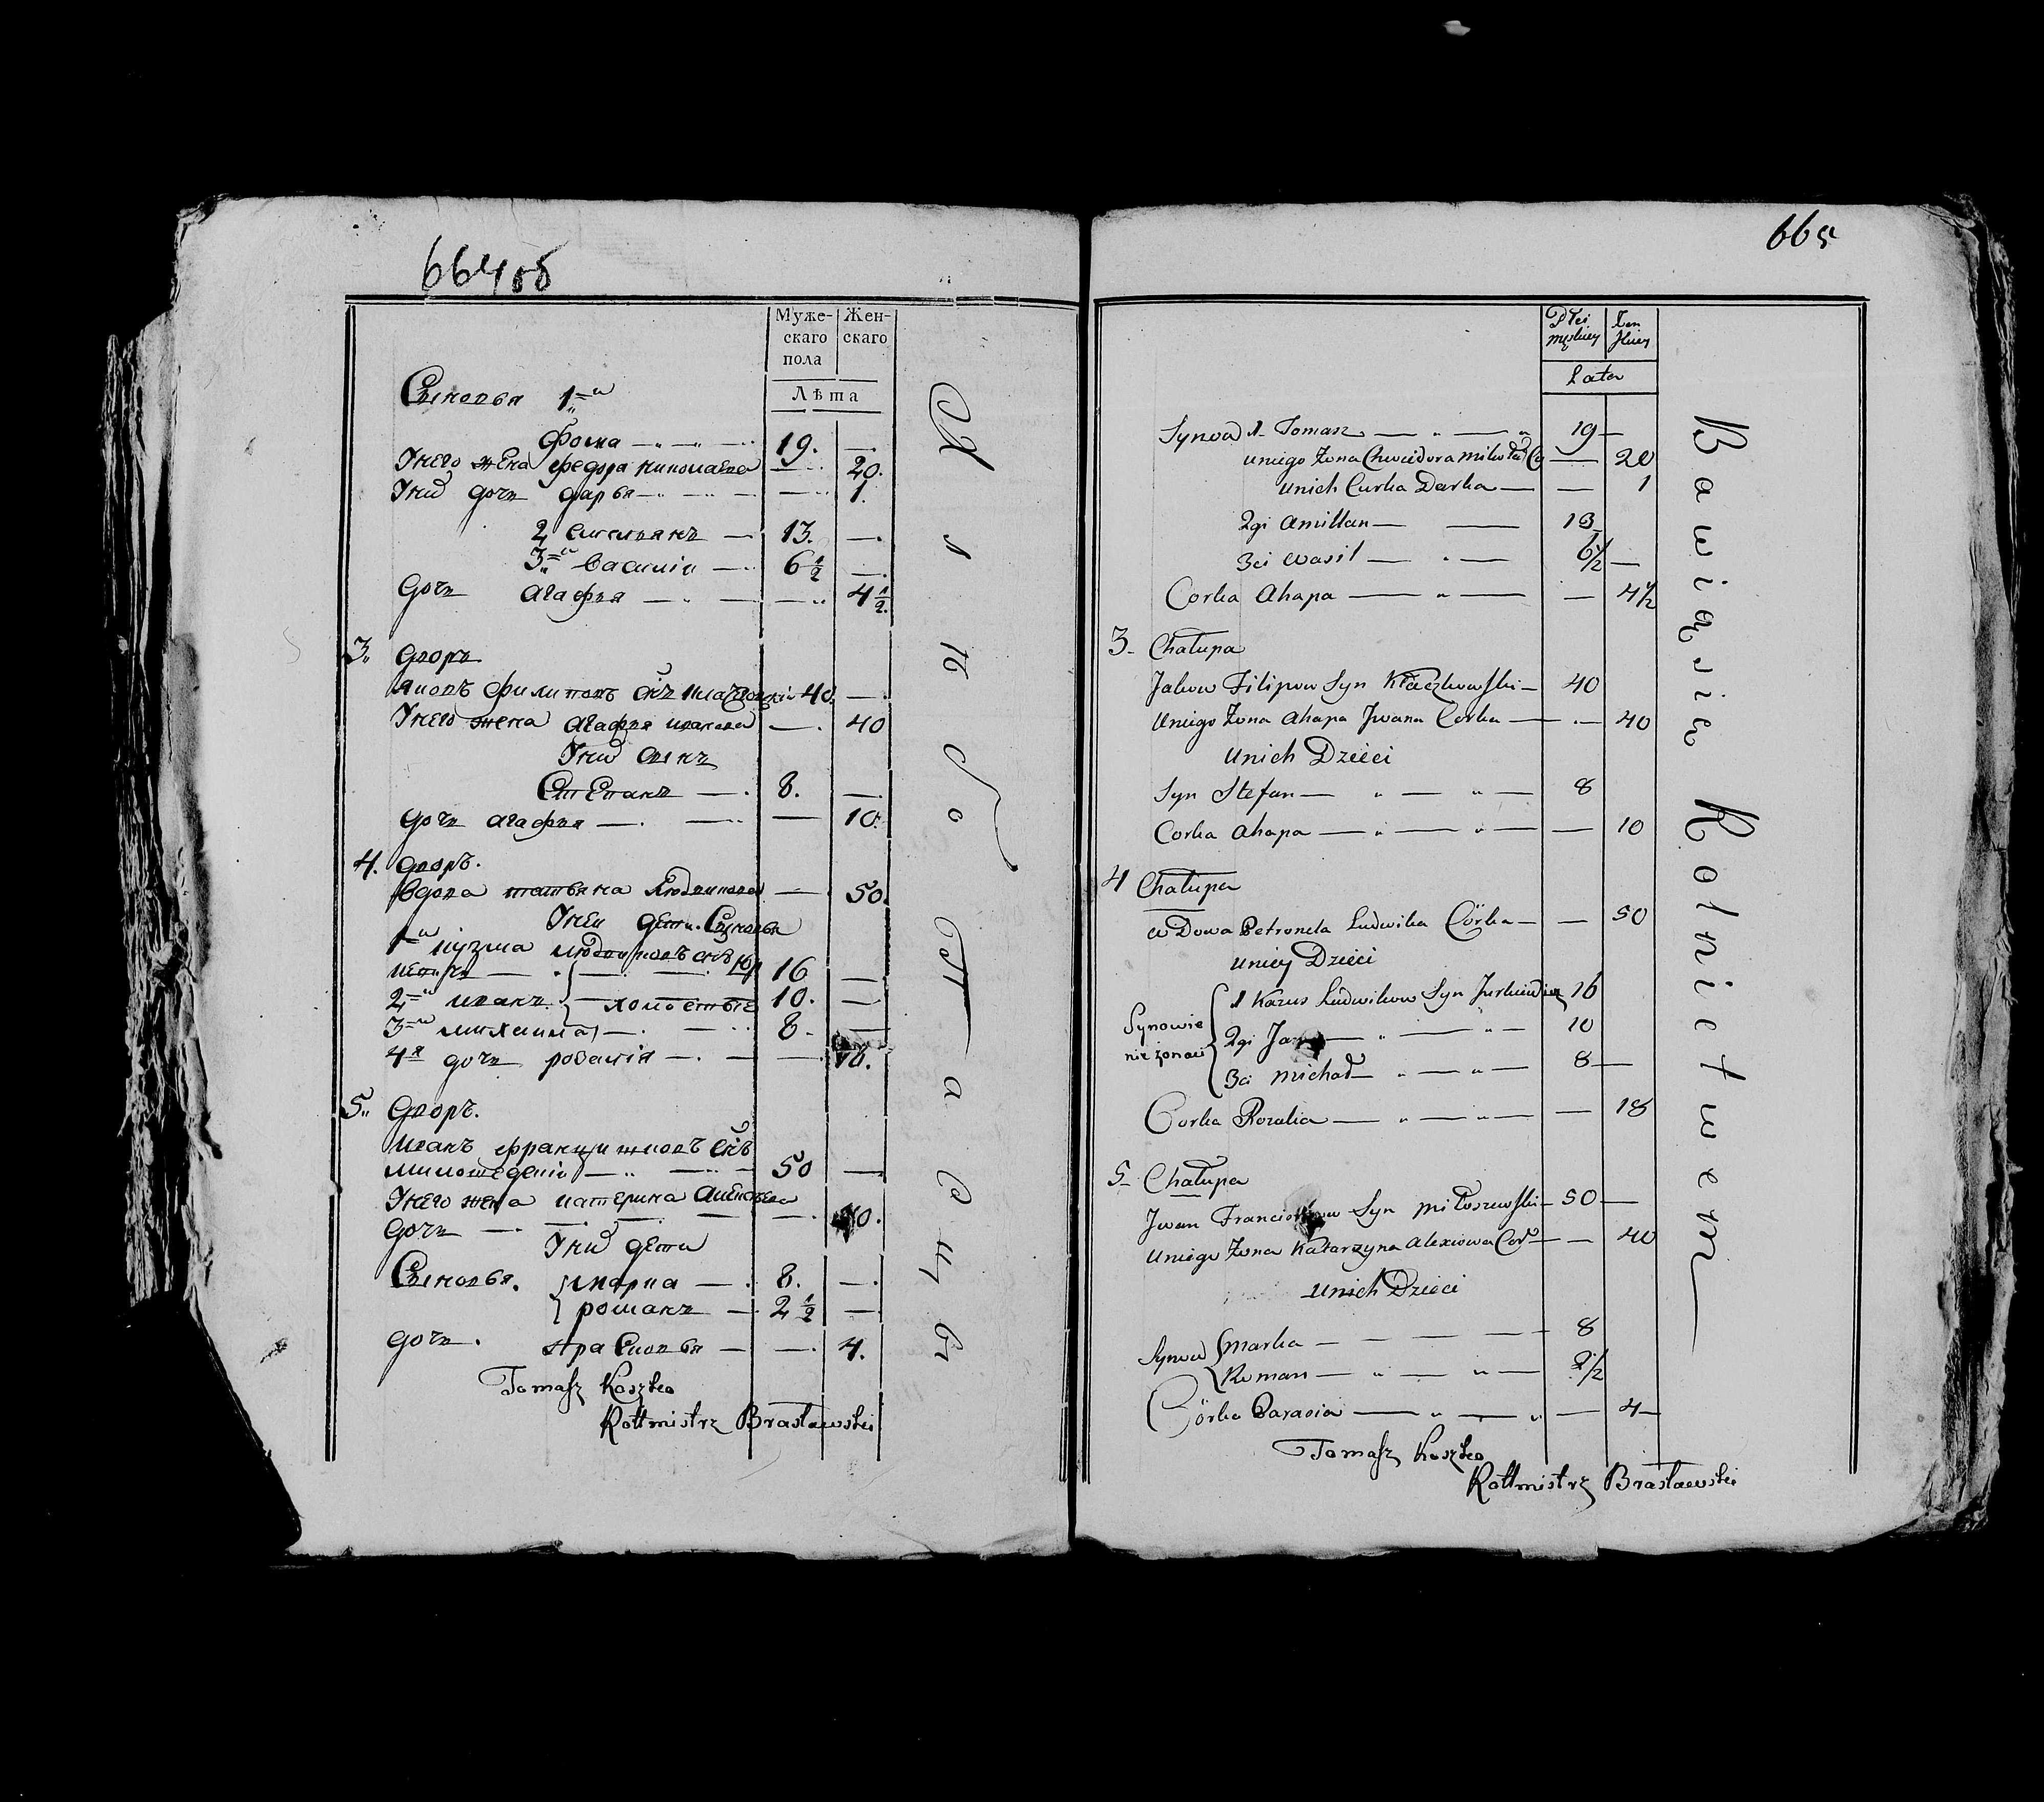 664об
Муже-
скаго
пола
Жен-
скаго
Лѣта
Сыновья 1й
Фома 19.
У него жена федора николаева 20.
У них дочь дарья 1.
2 емельянъ 13.
3й василій 6 1/2
дочь агафья 4 1/2.
3. дворъ
яковъ филиповъ снъ 40.
У него жена агафья иванова 40
У них сынъ
Степанъ 8.
дочь агафья 10.
4. дворъ.
вдова татьяна 50.
У неи дети Сыновья
1й кузма
16
2й иванъ холостые 10.
3й михаила 8.
4я дочь розалія
5. дворъ.
иванъ снъ
50
У него жена катерина
дочь
У них дети
Сыновья. марка 8.
романъ 2 1/2
дочь. 4.
Tomasz Koszko
Rottmistrz Brasławski
665
Płci
męskiey
Żen
skiey
Lata
Synowa 1 Tomasz 19
u niego Żona Chwiedora 20
u nich Curka Darka 1
2gi Amillan 13
3ci Wasil 6 1/2
Corka Ahapa 4 1/2
3 Chałupa
Jakow Filipow Syn Kłaczkowski 40
u niego Żona Ahapa Jwana Corka 40
u nich Dzieci
Syn Stefan 8
Corka Ahapa 10
4 Chałupa
w Dowa Petronela Ludwika Córka 50
u niey Dzieci
Synowie
nie żonaci
1 Kazus Ludwikow Syn Jurkiewicz 16
2gi 10
3ci Michał 8
Corka Rozalia 18
5 Chałupa
Jwan Syn Miłoszewski 50
u niego Żona Katarzyna Alexiowa Cor 40
u nich Dzieci
Synow Marka 8
Roman 2 1/2
Córka Parasia 4
Tomasz Koszko
Rottmistrz Brasławski
Bawią się Rolnictwem